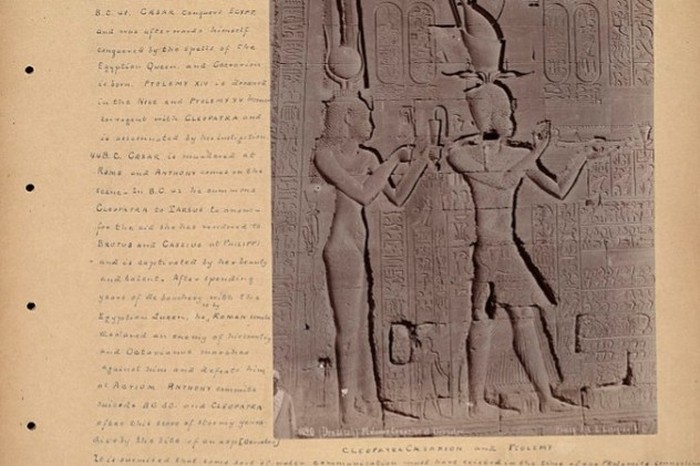 B.C. 48. CÆSAR conquers EGYPT
and was afterwards himself
conquered by the spells of the
Egyptian Queen. and Caesarion
is born. PTOLEMY XIV is drowned
in the NILE and PTOLEMY XV
co-regent with CLEOPATRA and
is assassinated by her instigation
44 B.C. CÆSAR is murdered at
ROME and ANTHONY comes on the
scene. In B.C. 42 he summons
CLEOPATRA to TARSUS to answer
for the aid she has rendered to
BRUTUS and CASSIUS at PHILIPPI
and is captivated by her beauty
and talent. After spending
years of debauchery with the
Egyptian Queen, he, is by ROMAN
declared an enemy of his country
and Octavianus marches
against him and defeats him
at ACTIUM. ANTHONY commits
suicide BC 30. and CLEOPATRA
after this scene of stormy years
dies by the bite of an asp
CLEOPATRA CÆSARION and PTOLEMY
It is surmised that some sort of water communication must have existed on the